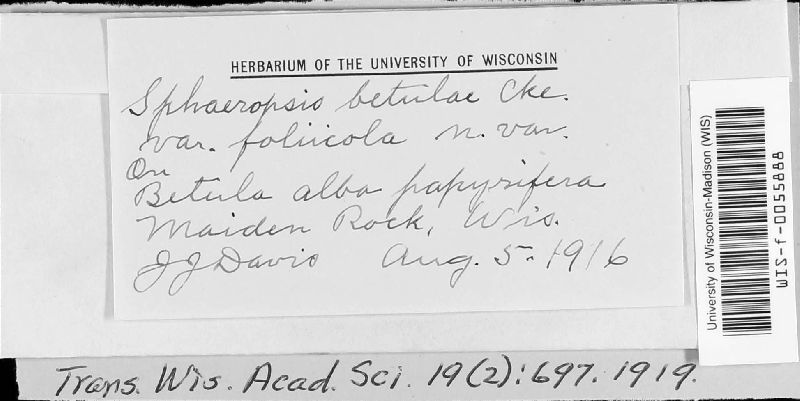 HERBARIUM OF THE UNIVERSITY OF WISCONSIN
Sphaeropsis betulae Cke.
var. foliicola n. var.
On
Betula alba papyrifera
Maiden Rock, Wis.
JJ Davis Aug. 5. 1916
University of Wisconsin-Madison (WIS)
WIS-f-0055888
Trans. Wis. Acad. Sci. 19(2):697. 1919.